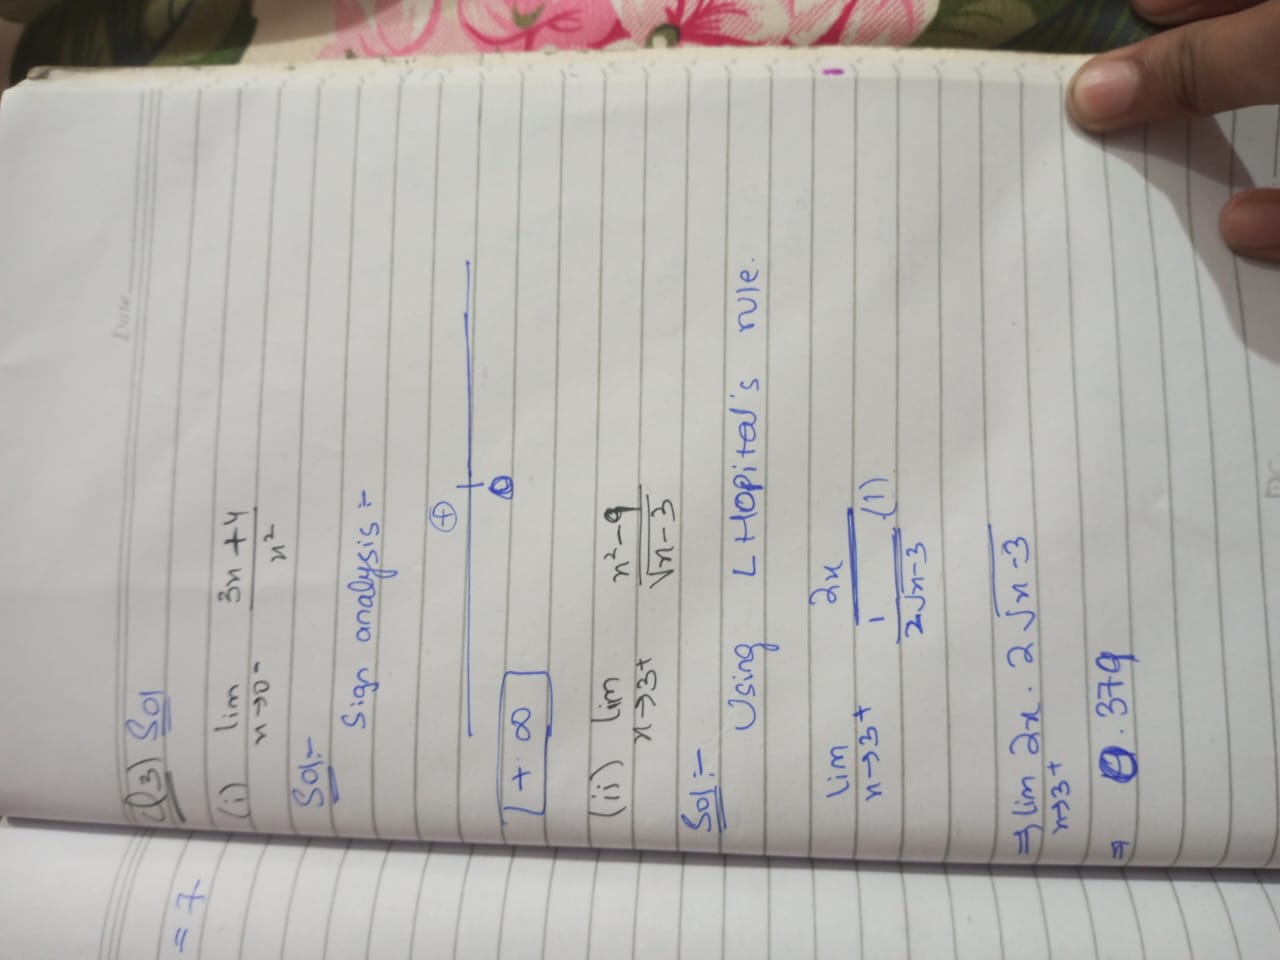 = 7
Date
Q3) Sol
(i) lim x→0⁻ (3x+4)/x²
Sol:-
Sign analysis :-
⊕
0
+ ∞
(ii) lim x→3+ (x²-9)/√x-3
Sol:-
Using L Hopital's rule.
lim x→3+ 2x/(1/(2√x-3) .(1))
⇒ lim x→3+ 2x . 2√x-3
⇒ 0.379